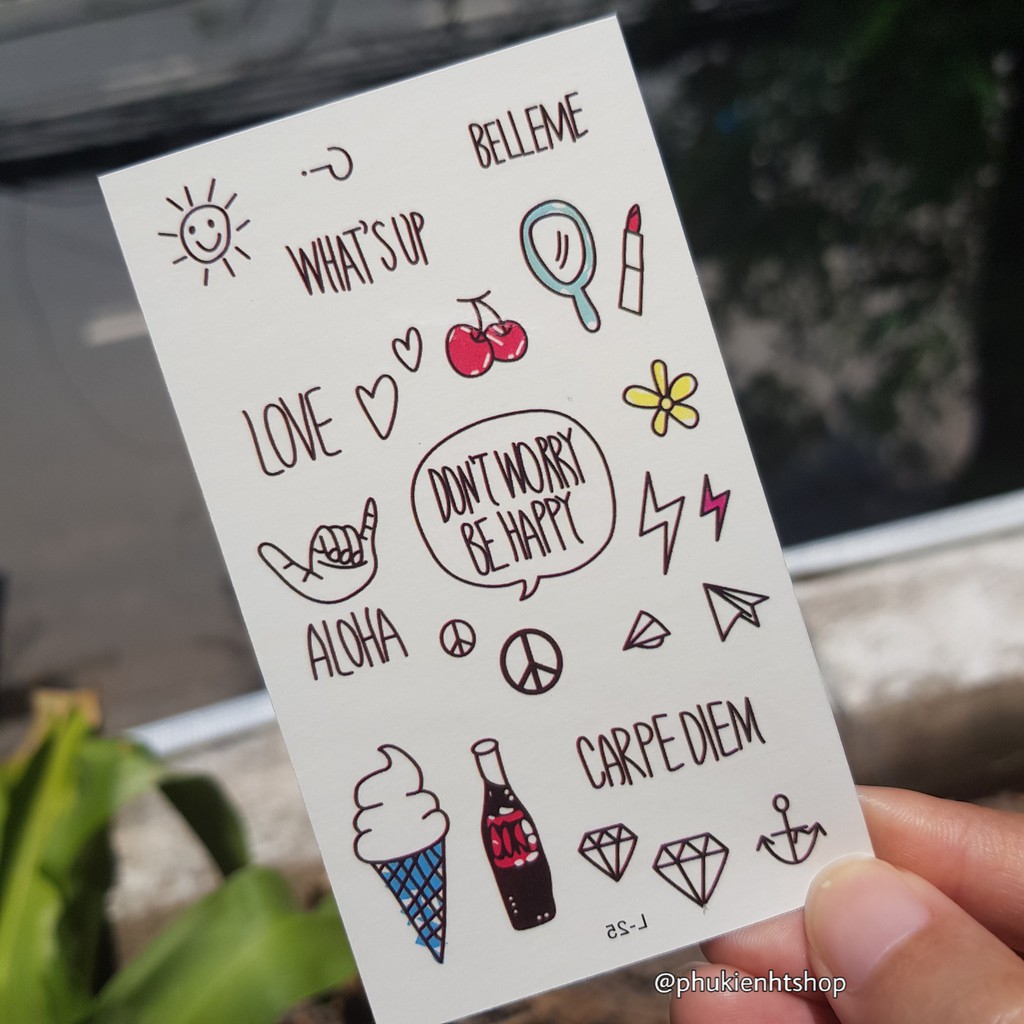 BELLEME
?
WHAT'S UP
LOVE
DON'T WORRY
BE HAPPY
ALOHA
CARPE DIEM
L-25
@phukienhtshop